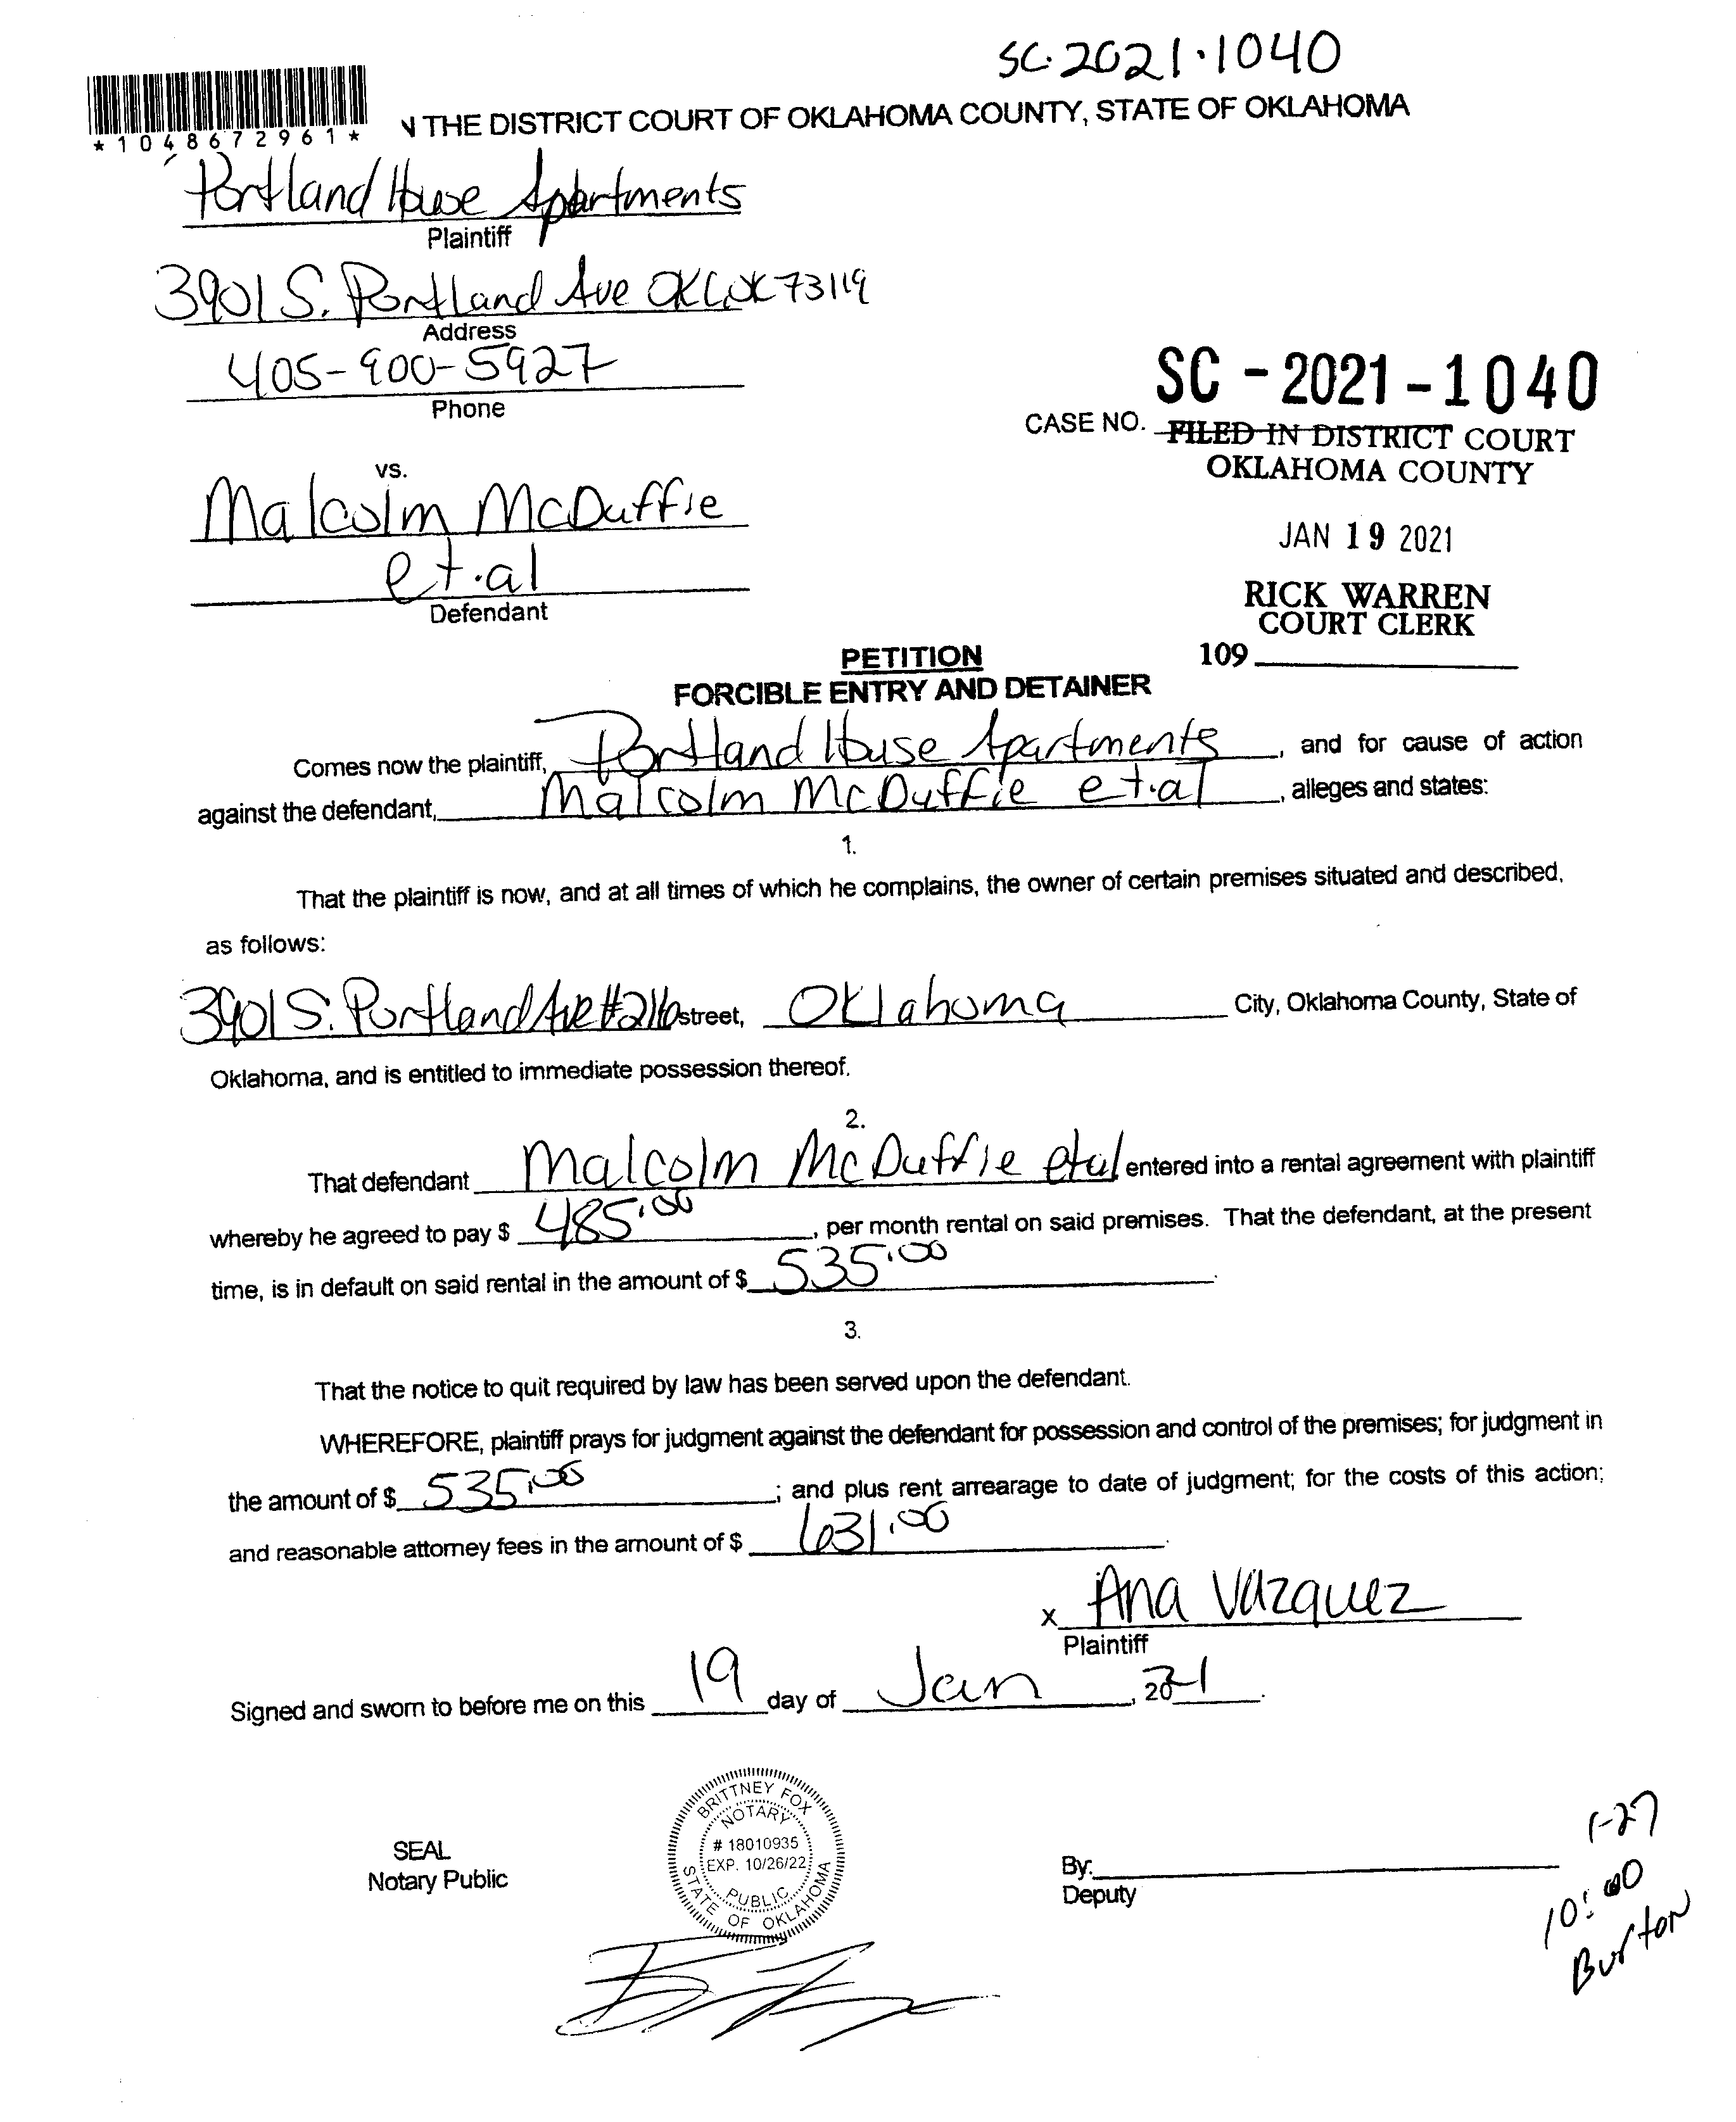 SC-2021-1040
*1048672961*
N THE DISTRICT COURT OF OKLAHOMA COUNTY, STATE OF OKLAHOMA
Portland House Apartments
Plaintiff
3901 S. Portland Ave OKC OK 73119
Address
405-900-5927
Phone
SC-2021-1040
CASE NO.
FILED IN DISTRICT COURT
OKLAHOMA COUNTY
JAN 19 2021
RICK WARREN
COURT CLERK
109
vs.
Malcolm McDuffie
et.al
Defendant
PETITION
FORCIBLE ENTRY AND DETAINER
Comes now the plaintiff, Portland House Apartments, and for cause of action
against the defendant, Malcolm McDuffie et.al, alleges and states:
1.
That the plaintiff is now, and at all times of which he complains, the owner of certain premises situated and described,
as follows:
3901 S. Portland Ave #216 street, Oklahoma City, Oklahoma County, State of
Oklahoma, and is entitled to immediate possession thereof.
2.
That defendant Malcolm McDuffie etal entered into a rental agreement with plaintiff
whereby he agreed to pay $ 485.00, per month rental on said premises. That the defendant, at the present
time, is in default on said rental in the amount of $ 535.00.
3.
That the notice to quit required by law has been served upon the defendant.
WHEREFORE, plaintiff prays for judgment against the defendant for possession and control of the premises; for judgment in
the amount of $ 535.00; and plus rent arrearage to date of judgment; for the costs of this action;
and reasonable attorney fees in the amount of $ 631.00.
x Ana Vazquez
Plaintiff
Signed and sworn to before me on this 19 day of Jan, 2021.
SEAL
Notary Public
BRITTNEY FOX
NOTARY
# 18010935
EXP. 10/26/22
PUBLIC
STATE OF OKLAHOMA
By:
Deputy
1-27
10:00
Burton